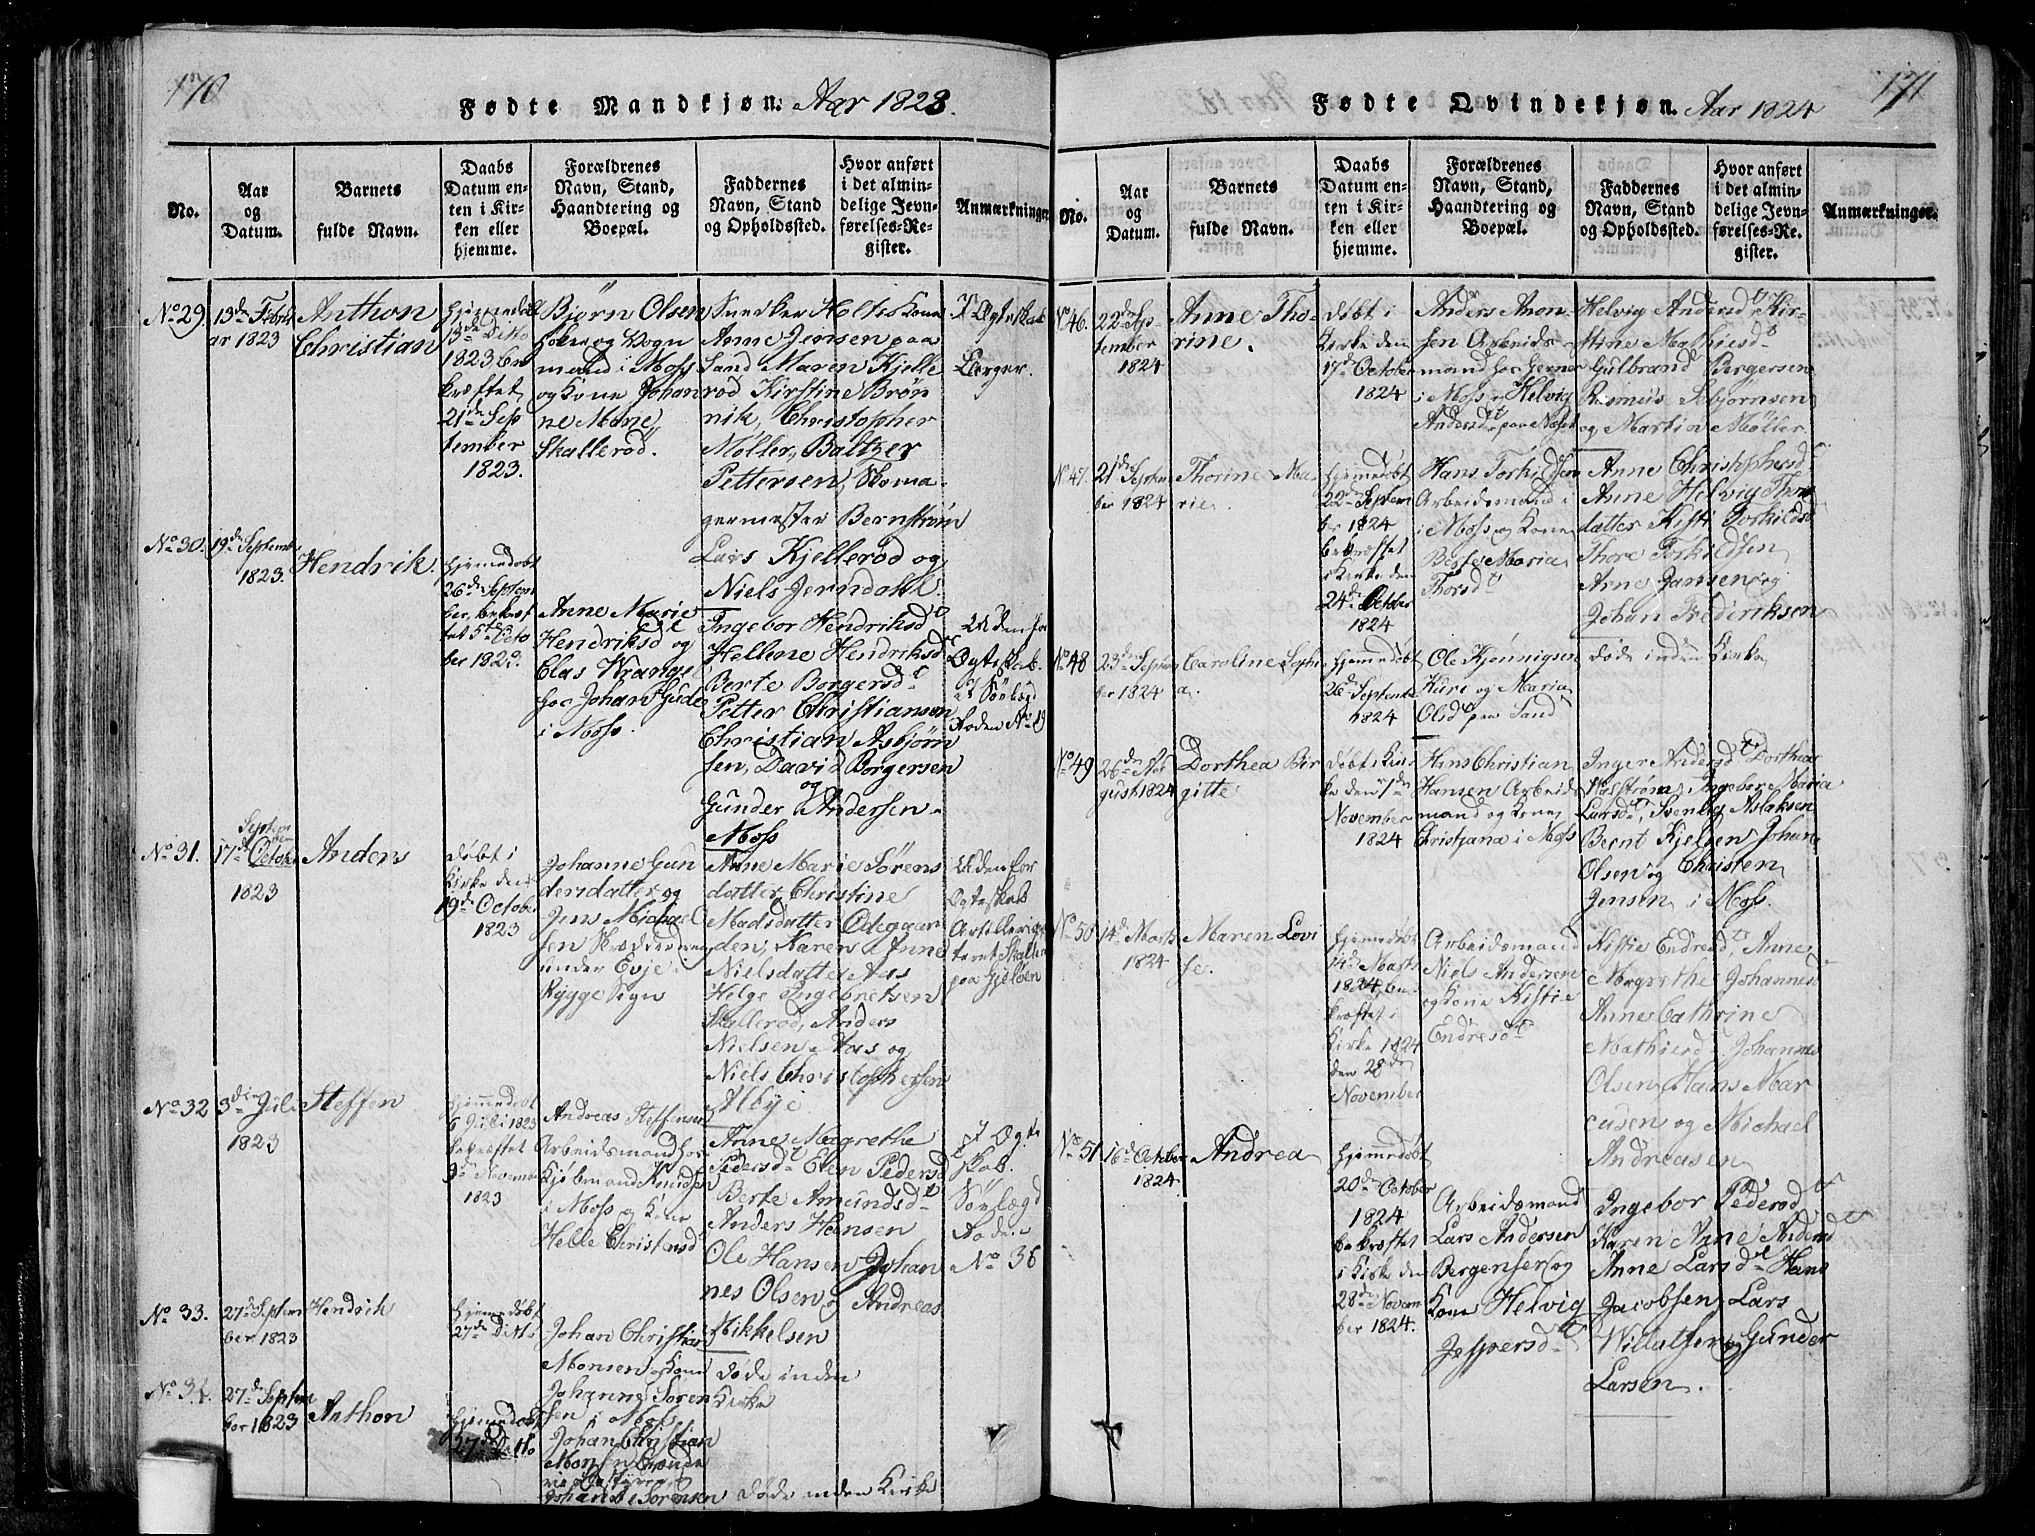 170
Fødte Mandkjøn. Aar 1823.
No.
Aar og Datum.
Barnets fulde Navn.
Daabs Datum enten i Kirken eller hjemme.
Forældrenes Navn, Stand, Haandtering og Boepæl.
Faddernes Navn, Stand og Opholdssted.
Hvor anført i det almindelige Jevnførelses-Register.
Anmærkninger
No 29.
13de Febru
ar 1823
Anthon
Christian
hjemmedøbt
13de Ditto
1823 be
kræftet
21de Sep
tember
1823.
Bjørn Olsen
mand i Moss
og Kone Johan
ne Marie
Skallerød.
Snedker Holtes Kone
Anne Jensen paa
Sand Maren Kjelle
rød Kirstine Brøn
nik, Christopher
Møller, Baltzer
Pettersen, Skoma
germester Bernstrøm
Lars Kjellerød og
Niels Jerndahl.
I Ægteskab
No 30.
19de Septembr
1823.
Hendrik.
hjemmedøbt
26de Septem
ber, bekræf
tet 5te Octo
ber 1823.
Anne Marie
Hendriksd og
Clas Wrangel
hos Johan Gude
i Moss.
Ingebor Hendriksd
Hellene Hendriksd
Berte Borgersd
Petter Christiansen
Christian Asbjørn
sen, David Borgersen
og
Gunder Andersen
Moss
Uden for
Ægteskab.
No 31.
Septem
ber
17de October
1823
Anders
døbt i
Kirke den
19de October
1823
Johanne Gun
dersdatter og
Jens Michael
sen
under Evje i
Rygge Sogn
Anne Marie Sørens
datter, Christine
Madsdatter Odegaar
den, Karen Anne
Nielsdatter Aas
Helge Ingebretsen
Skallerød, Anders
Nielsen Aas og
Niels Christophersen
Albye
Uden for
Ægteskab
paa Gjeløen
No 32
3die Juli
1823
Steffen
hjemmedøbt
6 Juli 1823
bekræftet
9de Novembr
1823
Andreas Steffensen
Arbeidsmand hos
Kjøbmand Knudsen
i Moss og Kone
Helle Christensd
Anne Magrethe
Pedersd Elen Pedersd
Berte Amundsd
Anders Hansen
Ole Hansen Johan
nes Olsen og Andreas
Mikkelsen
I Ægte
skab.
Søelægd
Rode
No 36
No 33.
27de Septem
ber 1823
Hendrik
hjemmedøbt
27de Ditto
Johan Christian
Monsen og Kone
Johanne Søren
sen i Moss
døde inden
Kirke
No 34.
27de Septem
ber 1823
Anthon
hjemmedøbt
27de Ditto
Johan Christian
Johanne Sørensen
døde inden Kirke
171
Fødte Qvindekjøn. Aar 1824
No.
Aar og Datum.
Barnets fulde Navn.
Daabs Datum enten i Kirken eller hjemme.
Forældrenes Navn, Stand, Haandtering og Boepæl.
Faddernes Navn, Stand og Opholdssted.
Hvor anført i det almindelige Jevnførelses-Register.
Anmærkninger.
No 46.
22de Sep
tember
1824
Anne Tho-
rine.
døbt i
Kirke den
17de October
1824
Anders Anon
sen Arbeids-
mand hos Gerner
i Moss og Helvig
Andersd paa Næset
Helvig Andersd Kir-
stine Mathiesd
Gulbrand Bergersen
Rasmus Esbjørnsen
og Martin Møller.
No 47.
21de Septem
ber 1824
Thorine Ma-
rie.
hjemmedøbt
22de Septem
ber 1824
bekræftet
i Kirke den
24de October
1824
Hans Torkildsen
Arbeidsmand i
i Moss og Kone
Berte Maria
Thorsd
Anne Christophersd
Anne Helvig Thors
datter Kisti Torkildsd
Thore Torkildsen
Arne Jansen og
Johan Frederiksen
No 48
23de Septem
ber 1824
Caroline Sophi
a.
hjemmedøbt
26de Septembr
1824
Ole Kjønnigsen
Kure og Maria
Olsd paa Sand
døde inden Kirke
No 49
26de Au
gust 1824
Dorthea Bir
gitte
døbt i Kir
ke den 7de
November
1824
Hans Christian
Hansen Arbeids
mand og Kone
Christjana i Moss
Inger Andersd Dorthea
Ingebor Maria
Larsd, Svenke Aslaksen
Bernt Kjelsen, Johan
Olsen og Christen
Jensen i Moss.
No 50
14de Marts
1824
Maren Lovi
se.
hjemmedøbt
14de Marts
1824, be
kræftet i
Kirke 1824
den 28de
November
Arbeidsmand
Niels Andersen
og Kone Kistie
Endresd
Kistie Endresd, Anne
Magrethe Johannesd
Anne Cathrine
Mathiesd Johannes
Olsen, Hans Mar
cusen og Michael
Andreasen
No 51
16de October
1824
Andrea
hjemmedøbt
20de October
1824
bekræftet
i Kirke den
28de Novem
ber 1824.
Arbeidsmand
Lars Andersen
Bergensen og
Kone Helvig
Jespersd
Ingebor Pedersd
Karen Anne Andersd
Anne Larsd Hans
Jacobsen Lars
Willatsen og Gunder
Larsen.